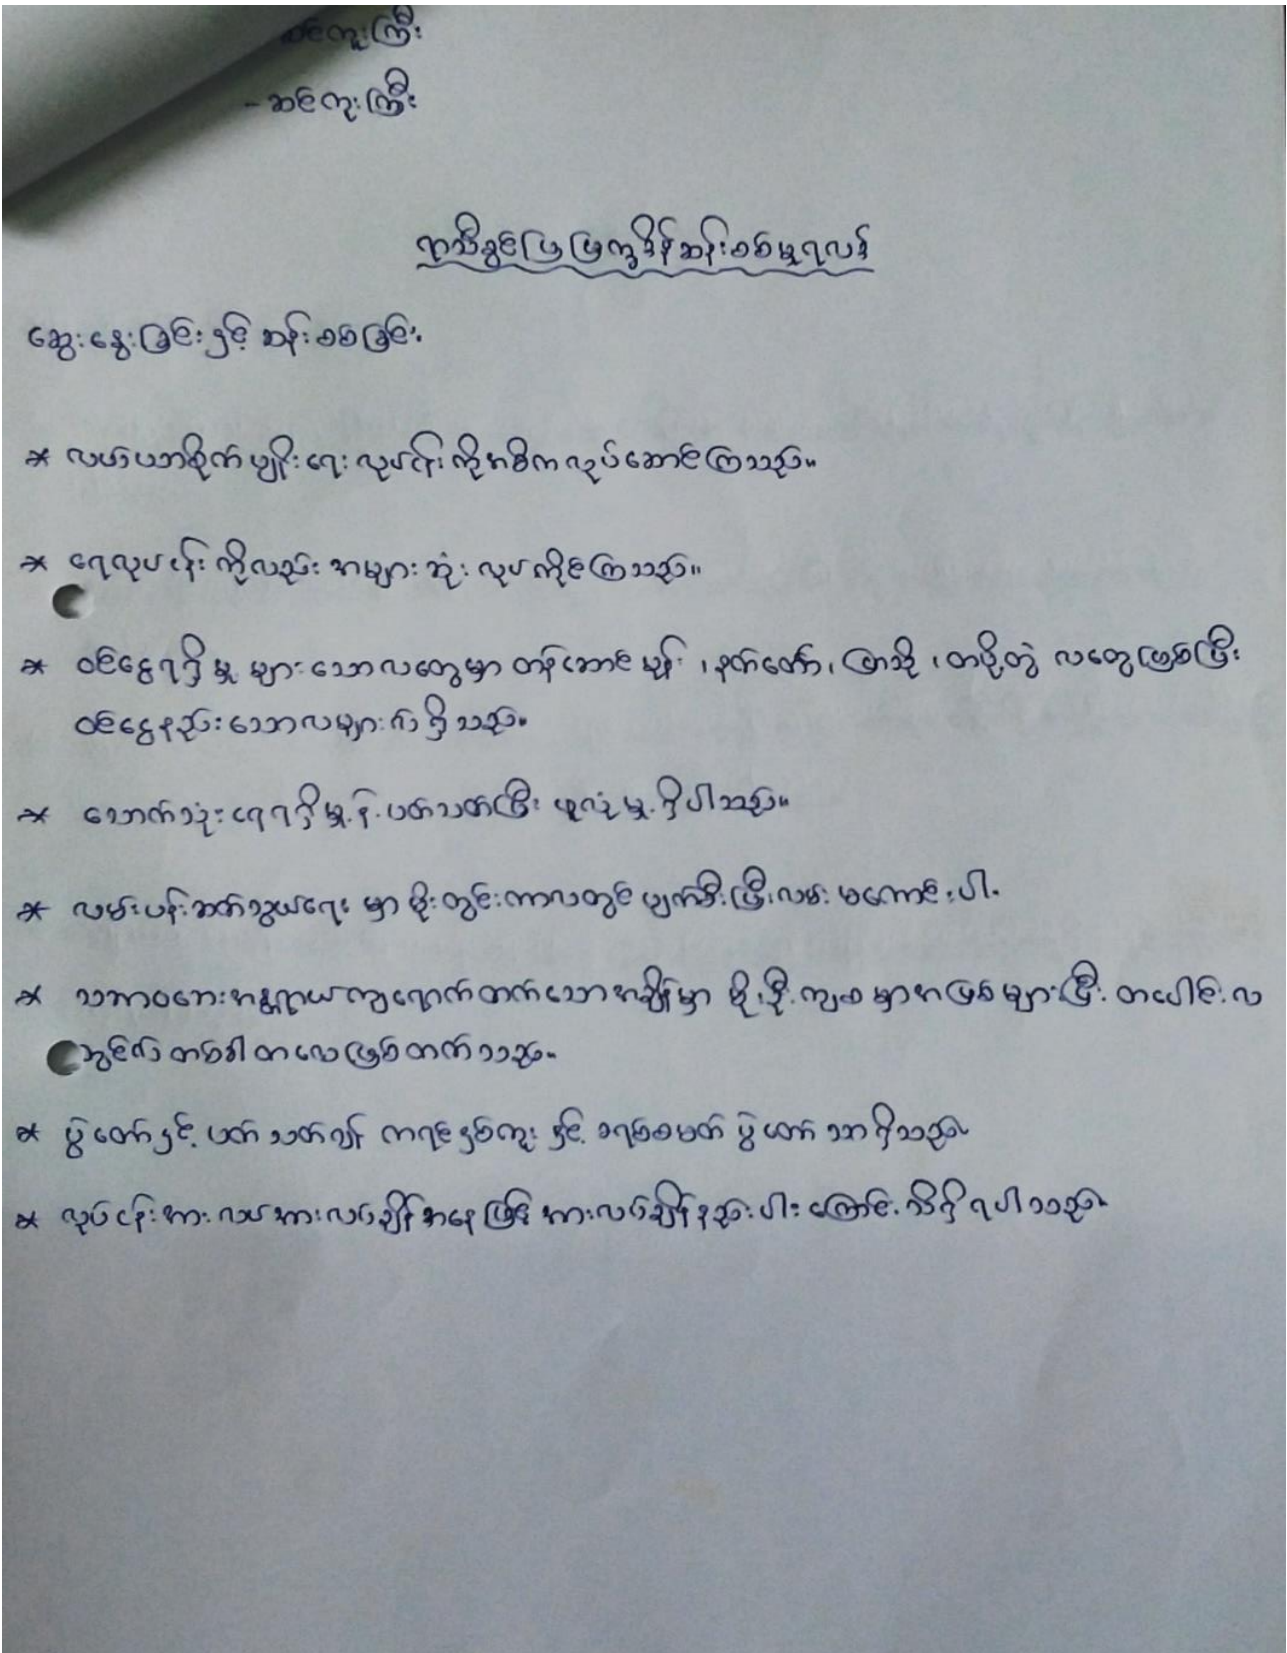 ဆင်ကူးကြီး
- ဆင်ကူးကြီး
ရာသီခွင်ပြ ပြက္ခဒိန်ဆန်းစစ်မှုရလဒ်
ဆွေးနွေးခြင်းနှင့် ဆန်းစစ်ခြင်း
* လယ်ယာစိုက်ပျိုးရေး လုပ်ငန်းကိုအဓိက လုပ်ဆောင်ကြသည်။
* ရေလုပ်ငန်းကိုလည်း အများဆုံး လုပ်ကိုင်ကြသည်။
* ဝင်ငွေရရှိမှု များသောလတွေမှာ တန်ဆောင်မုန်း ၊ နတ်တော်၊ ပြာသို ၊ တပို့တွဲ လတွေဖြစ်ပြီး
ဝင်ငွေနည်းသောလများလဲ ရှိသည်။
* သောက်သုံးရေရရှိမှုနဲ့ ပတ်သတ်ပြီး ဖူလုံမှု ရှိပါသည်။
* လမ်းပန်းဆက်သွယ်ရေး မှာ မိုးတွင်းကာလတွင် ပျက်စီးပြီး လမ်း မကောင်းပါ။
* သဘာဝဘေးအန္တရာယ်ကျရောက်တတ်သောအချိန်မှာ မိုးဦးကျမှာအဖြစ်များပြီး တပေါင်းလ
တွင်လဲ တစ်ခါတလေဖြစ်တတ်သည်။
* ပွဲတော်နှင့် ပတ်သတ်၍ ကရင်နှစ်ကူး နှင့် ခရစ်စမတ် ပွဲတော် သာရှိသည်။
* လုပ်ငန်းအား လပ်အားလပ်ချိန်အနေဖြင့် အားလပ်ချိန်နည်းပါးကြောင်း သိရှိရပါသည်။